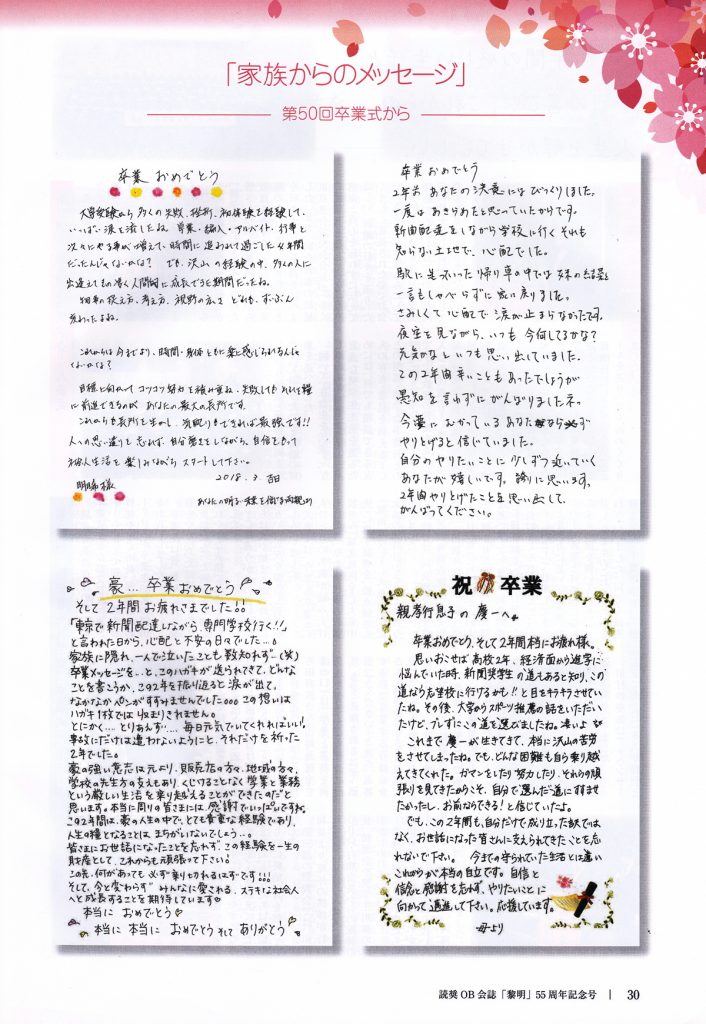 「家族からのメッセージ」
第50回卒業式から
卒業 おめでとう
大学受験から 多くの失敗、挫折、初体験を経験して、
いっぱい涙を流したね。授業・編入・アルバイト・行事と
次々にやる事が増えて、時間に追われて過ごした4年間
だったんじゃないかな? でも、沢山の経験の中、多くの人に
出逢えてもの凄く人間的に成長できた期間だったね。
物事の捉え方、考え方、視野の広さ どれも、ずいぶん
変わったよね。
これからは今までより、時間・身体ともに楽と感じられるんじゃ
ないかな?
目標に向かって コツコツ努力を積み重ね、失敗しても それを糧
に前進できるのが あなたの最大の長所です。
これからも長所を生かし、気配りもできれば最強です!!
人への思い遣りを忘れず、自分磨きをしながら、自信をもって
社会人生活を楽しみながら スタートして下さい。
2018.3.吉日
様
あなたの明るい未来を信じる両親より
卒業おめでとう
2年前 あなたの決意には びっくりしました。
一度は あきらめたと思っていたからです。
新聞配達をしながら学校に行く それも
知らない土地で、心配でした。
駅に送っていった帰り車の中では 妹の結愛と
一言もしゃべらずに家に戻りました。
さみしくて 心配で 涙が止まらなかったです。
夜空を見ながら、いつも 今何してるかな?
元気かな といつも思い出していました。
この2年間辛いこともあったでしょうが
愚知を言わずに がんばりましたネ。
今夢に むかっている あなたなら必ず
やりとげると信じていました。
自分のやりたいことに 少しずつ近いていく
あなたが嬉しいです。誇りに思います。
2年間やりとげたことを思い出して、
がんばってください。
豪… 卒業おめでとう
そして 2年間 お疲れさまでした!!
「東京で新聞配達しながら、専門学校行く!!」
と言われた日から、心配と不安の日々でした…。
家族に隠れ、一人で泣いたことも数知れず…(笑)
卒業メッセージを…と、このハガキが送られてきて、どんな
ことを書こうか、この2年を振り返ると涙が出て、
なかなかペンがすすみませんでした。。。この想いは
ハガキ1枚では収まりきれません。
とにかく… とりあえず…、毎日元気でいてくれればいい!
事故にだけは遭わないようにと、それだけを祈った
2年でした。
豪の強い意志は元より、販売店の方々、地域の方々、
学校の先生方の支えもあり、くじけることなく学業と業務
という厳しい生活を乗り越えることができたのだと
思います。本当に周りの皆さまには、感謝でいっぱいですね。
この2年間は、豪の人生の中で、とても貴重な経験であり、
人生の糧となることは まちがいないでしょう…。
皆さまにお世話になったことを忘れず、この経験を一生の
財産として、これからも頑張って下さい。
この先、何があっても 必ず乗り切れるはずです!!!
そして、今と変わらず みんなに愛される、ステキな社会人
へと成長することを期待しています♡
本当に おめでとう♡
本当に 本当に おめでとう そして ありがとう
祝 卒業
親孝行息子の 慶一へ。
卒業おめでとう。そして2年間本当にお疲れ様。
思いおこせば 高校2年、経済面から進学に
悩んでいた時、新聞奨学生の道もあると知り、この
道なら志望校に行けるかも!!と目をキラキラさせてい
たね。その後、大学からスポーツ推薦の話をいただい
たけど、ブレずにこの道を選びましたね。凄いよ
これまで 慶一が生きてきて、本当に沢山の苦労
をさせてしまったね。でも、どんな困難も自ら乗り越
えてきてくれた。ガマンをしたり 努力したり、それらの頑
張りを見てきたからこそ、自分で選んだ道にすすませ
たかったし、お前ならできる!と信じていたよ。
でも、この2年間も、自分だけで成り立った訳では
なく、お世話になった皆さんに支えられてきたことを忘
れないで下さい。 今までの守られていた生活とは違い
これからが本当の自立です。自信と
信念と感謝を忘れず、やりたいことに
向かって邁進して下さい。応援しています。
母より
読奨OB会誌「黎明」55周年記念号 | 30